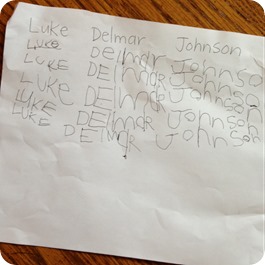 Luke Delmar Johnson
Luke Delmar Johnso
LUKE DElmar Johnson
LUKE DElmar Johnson
LUKE DElmar Johnson
LUKE DElmar Johnson